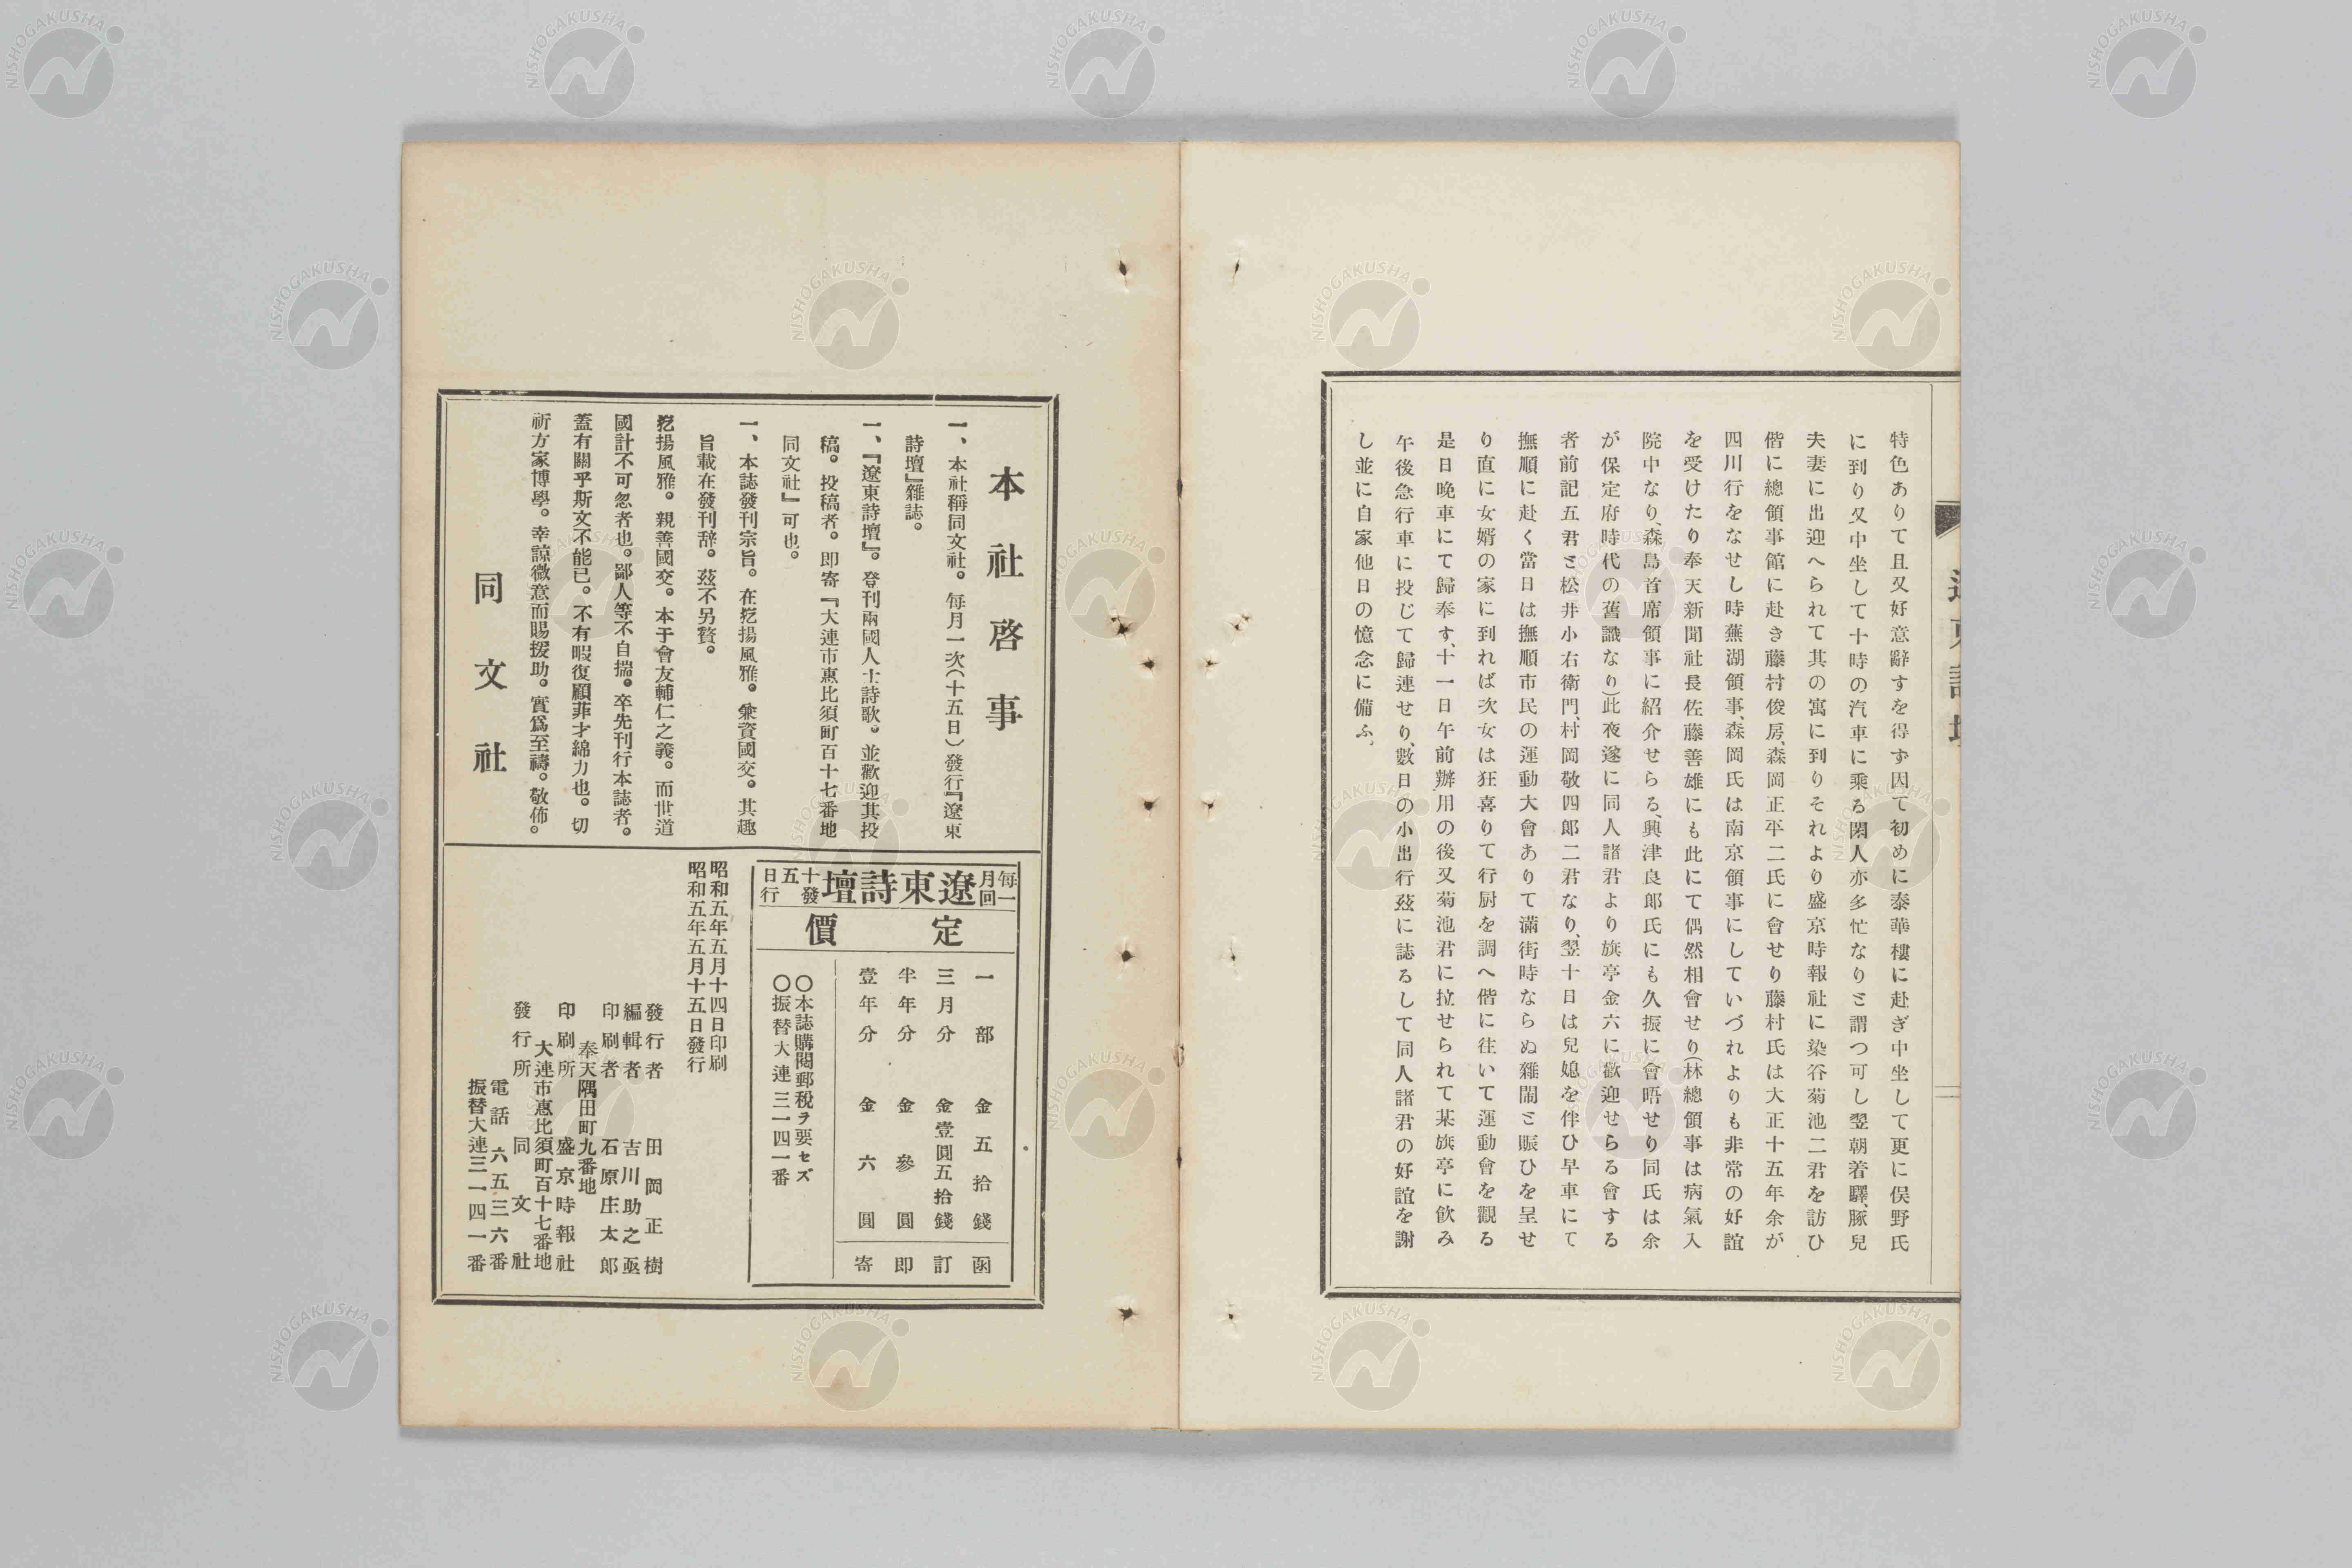 特色ありて且又好意辭すを得ず因て初めに泰華樓に赴ぎ中坐して更に俣野氏
に到り又中坐して十時の汽車に乘る閑人亦多忙なりと謂つ可し翌朝着驛、豚兒
夫妻に出迎へられて其の寓に到りそれより盛京時報社に染谷菊池二君を訪ひ
偕に總領事館に赴き藤村俊房、森岡正平二氏に會せり藤村氏は大正十五年余が
四川行をなせし時蕪湖領事、森岡氏は南京領事にしていづれよりも非常の好誼
を受けたり奉天新聞社長佐藤善雄にも此にて偶然相會せり(林總領事は病氣入
院中なり、森島首席領事に紹介せらる、興津良郎氏にも久振に會晤せり同氏は余
が保定府時代の舊識なり)此夜遂に同人諸君より旗亭金六に歡迎せらる會する
者前記五君と松井小右衛門、村岡敬四郎二君なり、翌十日は兒媳を伴ひ早車にて
撫順に赴く當日は撫順市民の運動大會ありて滿街時ならぬ雜鬧と賑ひを呈せ
り直に女婿の家に到れば次女は狂喜りて行厨を調へ偕に往いて運動會を觀る
是日晩車にて歸奉す、十一日午前辦用の後又菊池君に拉せられて某旗亭に飮み
午後急行車に投じて歸連せり、數日の小出行玆に誌るして同人諸君の好誼を謝
し並に自家他日の憶念に備ふ。
本社啓事
一、本社稱同文社。每月一次(十五日)發行『遼東
詩壇』雜誌。
一、『遼東詩壇』。登刊兩國人士詩歌。並歡迎其投
稿。投稿者。即寄『大連市惠比須町百十七番地
同文社』可也。
一、本誌發刊宗旨。在挖揚風雅。兼資國交。其趣
旨載在發刊辞。玆不另贅。
挖揚風雅。親善國交。本于會友輔仁之義。而世道
國計不可忽者也。鄙人等不自揣。卒先刊行本誌者。
蓋有關乎斯文不能已。不有暇復顧菲才綿力也。切
祈方家博學。幸諒微意而賜援助。實爲至禱。敬佈。
同文社
每月一回
遼東詩壇
十五日發行
定價
一部 金五拾錢 函
三月分 金壹圓五拾錢 訂
半年分 金參圓 即
壹年分 金六圓 寄
〇本誌購閱郵税ヲ要セズ
〇振替大連三一四一番
昭和五年五月十四日印刷
昭和五年五月十五日發行
發行者 田岡正樹
編輯者 吉川助之亟
印刷者 石原庄太郎
奉天隅田町九番地
印刷所 盛京時報社
大連市惠比須町百十七番地
發行所 同文社
電話六五三六番
振替大連三一四一番
NISHOGAKUSHA